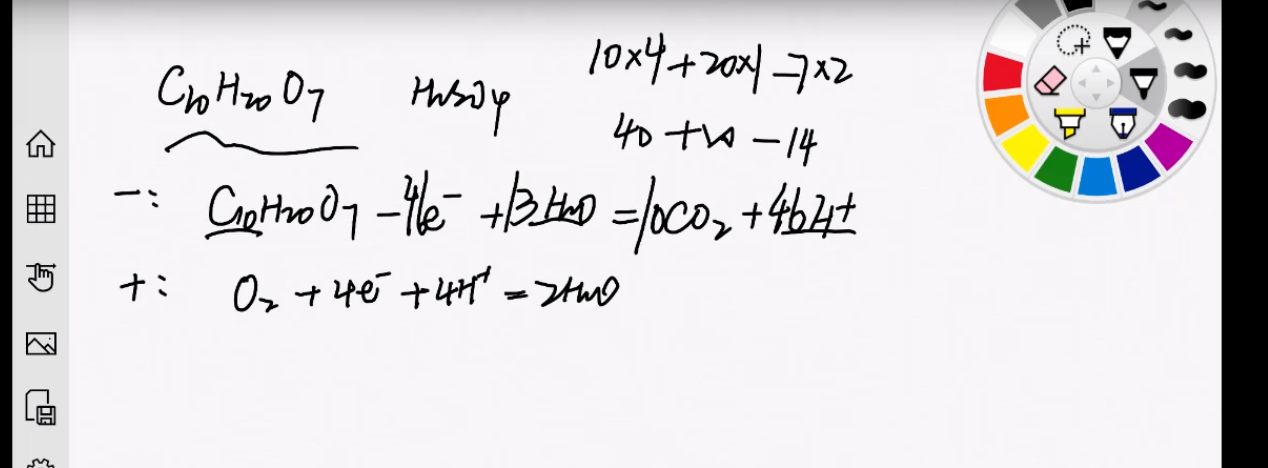 C₁₀H₂₀O₇ H₂SO₄ 10×4+20×1-7×2
40+20-14
-: C₁₀H₂₀O₇-46e⁻+13H₂O=10CO₂+46H⁺
+: O₂+4e⁻+4H⁺=2H₂O